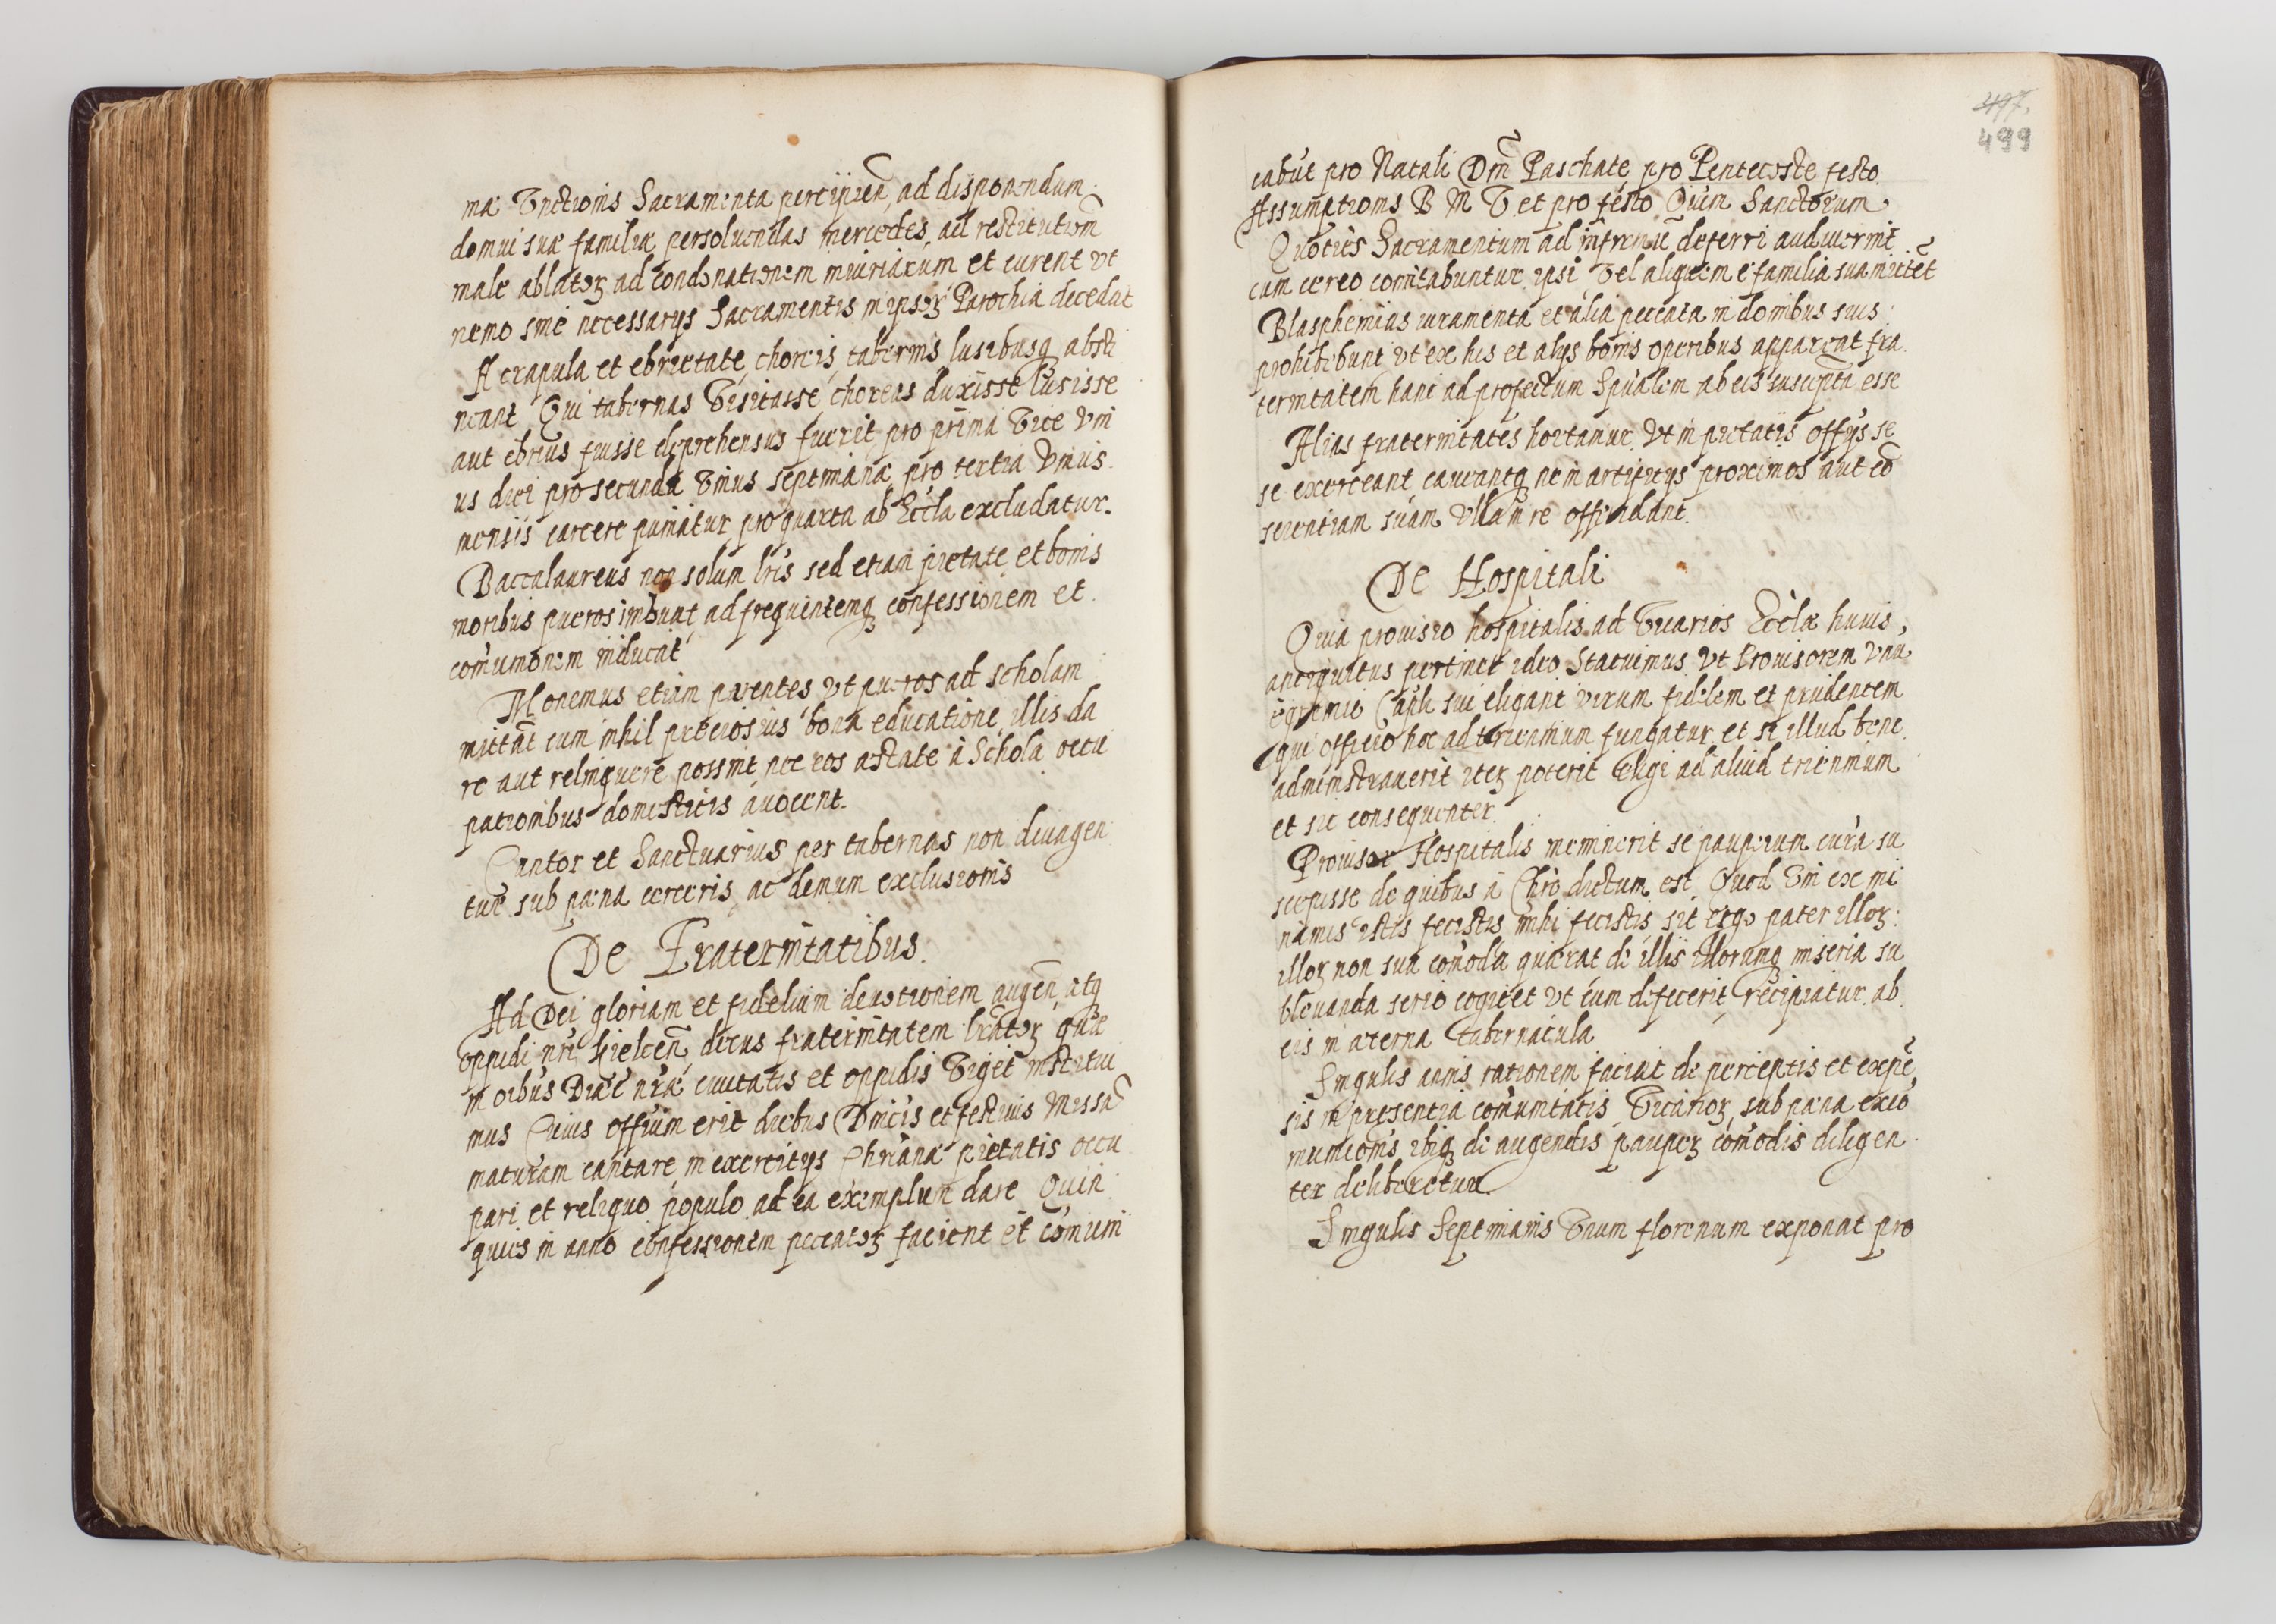 mæ Vnctionis Sacramenta percipien̄, ad disponendum
domui suæ familiæ persoluendas mercedes, ad restitutiom̄
male ablatoꝝ ad condonationem iniuriarum et curent vt
nemo sine necessarijs Sacramentis in ipsoꝝ Parochia decedat
A crapula et ebrietate, choreis, tabernis lusibusqꝫ absti
neant Qui tabernas Visitasse choreas duxisse lusisse
aut ebrius fuisse deprehensus fuerit pro prima Vice vni
us diei pro secunda Vnius septimanæ pro tertia Vnius
mensis carcere puniatur pro quarta ab Eccĺa excludatur.
Baccalaureus non solum lr̄is sed etiam pietate et bonis
moribus pueros imbuat ad frequentemqꝫ confessionem et
com̄unionem inducat
Monemus etiam parentes vt pueros ad scholam
mittāt cum nihil pretiosius bona educatione illis da
re aut relinquere possint nec eos æstate à Schola occu
pationibus domesticis auocent.
Cantor et Sanctuarius per tabernas non diuagen
tur sub pæna carceris ac demum exclusionis
De Fraternitatibus.
Ad Dei gloriam et fidelium deuotionem augen̄ atqꝫ
oppidi nr̄i Kielcen̄ decus fraternitatem literatoꝝ quæ
in oībus Diæc̄ nr̄æ ciuitatis et oppidis Viget institui
mus Cuius offium erit diebus Dnīcis et festiuis Missā
maturam cantare, in exercitijs Chrīanæ pietatis occu
pari et reliquo populo ad ea exemplum dare Quin
quies in anno confessionem peccatoꝝ facient et com̄uni
497.
499
cabūt pro Natali Dn̄i Paschate pro Pentecoste festo
Assumptionis B M V et pro festo Oīum Sanctorum
Quoties Sacramentum ad infirmū deferri audiuerint
cum cereo comitabuntur ipsi Vel aliquem è familia sua mittēt
Blasphemias iuramenta et alia peccata in domibus suis
prohibebunt vt ex his et alijs bonis operibus appareat fra
ternitatem hanc ad profectum Spūalem ab eis susceptā esse
Alias fraternitates hortamur vt in pietatis offijs se
se exerceant caueantqꝫ ne in artificijs proximos aut cō
scientiam suam vlla in re offendant.
De Hospitali
Quia prouisio hospitalis ad Vicarios Eccĺæ huius
antiquitus pertinet ideo Statuimus vt Prouisorem vnū
è gremio Capĺi sui eligant virum fidelem et prudentem
qui officio hoc ad triennium fungatur et si illud bene
administrauerit iteꝝ poterit Eligi ad aliud triennium
et sic consequenter
Prouisor Hospitalis meminerit se pauperum curā su
scepisse de quibus à Chrō dictum est Quod Vni ex mi
nimis istis fecistis mihi fecistis sit ergo pater illoꝝ
illoꝝ non sua com̄oda quærat de illis illorumqꝫ miseria su
bleuanda serio cogitet vt cum defecerit recipiatur ab
eis in æterna tabernacula
Singulis annis rationem faciat de perceptis et expē
sis in presentia com̄unitatis Vicarioꝝ sub pæna exco
municōnis ibiqꝫ de augendis paupeꝝ com̄odis diligen
ter deliberetur
Singulis Septimanis Vnum florenum exponat pro